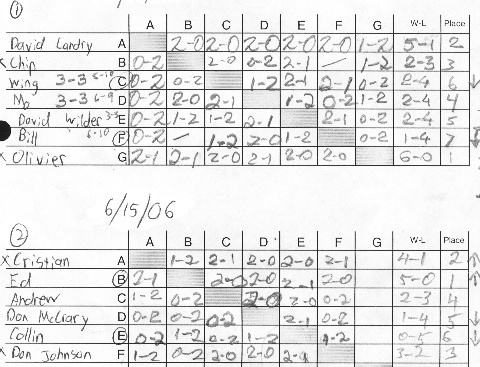 ① A B C D E F G W-L Place
David Landry A 2-0 2-0 2-0 2-0 2-0 1-2 5-1 2
x Chip B 0-2 2-0 0-2 2-1 – 1-2 2-3 3
Wing 3-3 C 0-2 0-2 1-2 2-1 2-1 0-2 2-4 6 ↓
Mo 3-3 6-9 D 0-2 2-0 2-1 1-2 0-2 1-2 2-4 4
David Wilder 3-3 E 0-2 1-2 1-2 2-1 2-1 0-2 2-4 5
Bill 6-10 F 0-2 – 1-2 2-0 1-2 0-2 1-4 7 ↓
x Olivier G 2-1 2-1 2-0 2-1 2-0 2-0 6-0 1
6/15/06
② A B C D E F G W-L Place
x Cristian A 1-2 2-1 2-0 2-0 2-1 4-1 2 ↑
Ed B 2-1 2-0 2-0 2-1 2-0 5-0 1 ↑
Andrew C 1-2 0-2 2-0 2-0 0-2 2-3 4
Don McCrary D 0-2 0-2 0-2 2-1 0-2 1-4 5 ↓
Collin E 0-2 1-2 0-2 1-2 1-2 0-5 6 ↓
x Don Johnson F 1-2 0-2 2-0 2-0 2-1 3-2 3